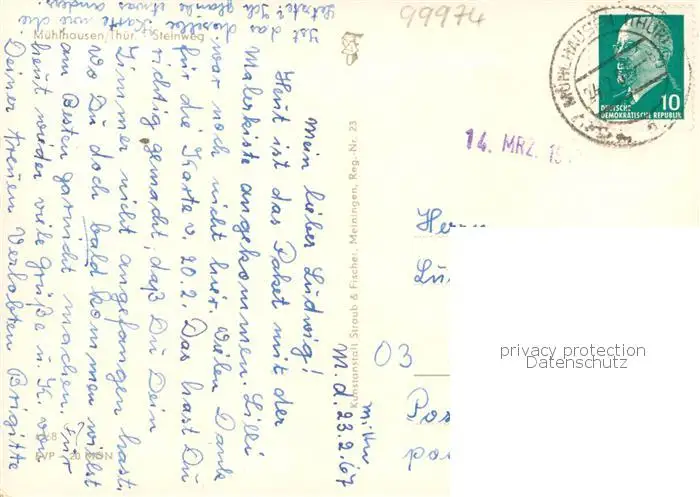 99974
Mühlhausen/Thür. Steinweg
MÜHLHAUSEN (THÜR)
10
DEUTSCHE
DEMOKRATISCHE REPUBLIK
14. MRZ. 19
M. d. 23.2.67
Mein lieber Ludwig!
Heut ist das Paket mit der
Malerkiste angekommen. Lilli
war noch nicht hier. Vielen Dank
für die Karte v. 20.2. Das hast Du
richtig gemacht, daß Du Dein
Zimmer nicht angefangen hast,
wo Du doch bald kommen willst
am Besten garnicht machen. Für
heut wieder viele Grüße u. K. von
Deiner treuen Verlobten Brigitte
Ist das dieselbe Karte wie die
Letzte? Ich glaube etwas anders.
Kunstanstalt Straub & Fischer, Meiningen, Reg.-Nr. 23
EVP -20 MDN
Herrn
Lu
03
Pos
privacy protection
Datenschutz